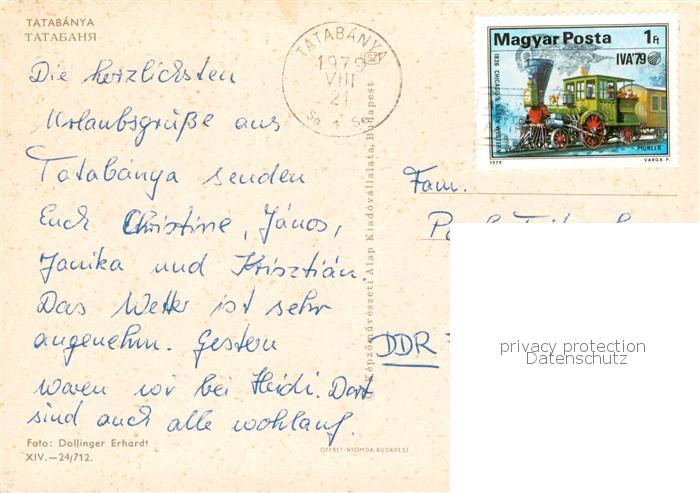 TATABÁNYA
ТАТАБАНЯ
Die herzlichsten
Urlaubsgrüße aus
Tatabánya senden
Euch Christine, János,
Janika und Krisztián.
Das Wetter ist sehr
angenehm. Gestern
waren wir bei Heidi. Dort
sind auch alle wohlauf.
Foto: Dollinger Erhardt
XIV.—24/712.
Képzőművészeti Alap Kiadóvállalata, Budapest
OFFSET-NYOMDA, BUDAPEST
TATABÁNYA
1979
VIII
21
Magyar Posta 1Ft
IVA'79
1836 CHICAGO &
PIONEER
1979 VARGA P.
Fam.
DDR
privacy protection
Datenschutz